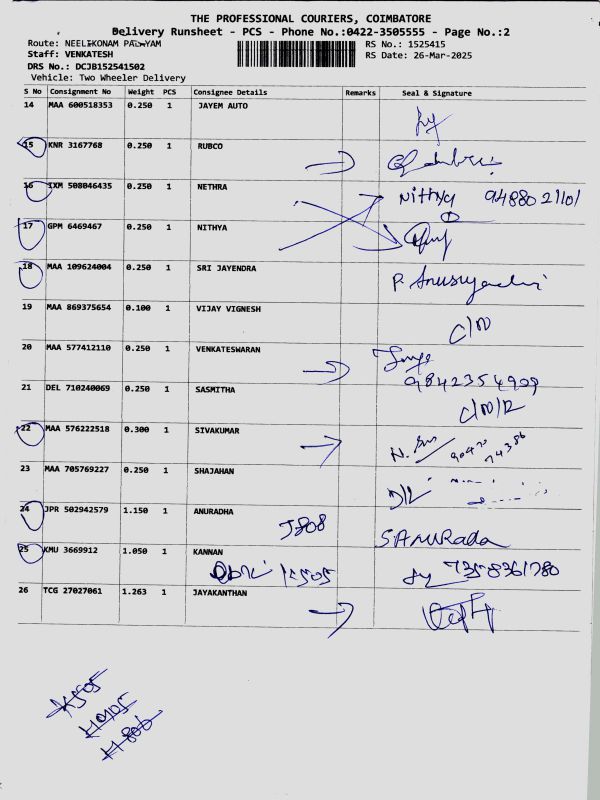 THE PROFESSIONAL COURIERS, COIMBATORE
Delivery Runsheet - PCS - Phone No.:0422-3505555 - Page No.:2
Route: NEELIKONAM PALAYAM
RS No.: 1525415
Staff: VENKATESH
RS Date: 26-Mar-2025
DRS No.: DCJB152541502
Vehicle: Two Wheeler Delivery
S No Consignment No Weight PCS Consignee Details Remarks Seal & Signature
14 MAA 600518353 0.250 1 JAYEM AUTO
15 KNR 3167768 0.250 1 RUBCO
16 IXM 508046435 0.250 1 NETHRA
Nithya 9488021101
17 GPM 6469467 0.250 1 NITHYA
18 MAA 109624004 0.250 1 SRI JAYENDRA
P. Anusuyadevi
19 MAA 869375654 0.100 1 VIJAY VIGNESH
C/N
20 MAA 577412110 0.250 1 VENKATESWARAN
9842354909
21 DEL 710240069 0.250 1 SASMITHA
C/N/R
22 MAA 576222518 0.300 1 SIVAKUMAR
23 MAA 705769227 0.250 1 SHAJAHAN
D/L
24 JPR 502942579 1.150 1 ANURADHA
J808 S ANURADA
25 KMU 3669912 1.050 1 KANNAN
K505 7358361780
26 TCG 27027061 1.263 1 JAYAKANTHAN
K505